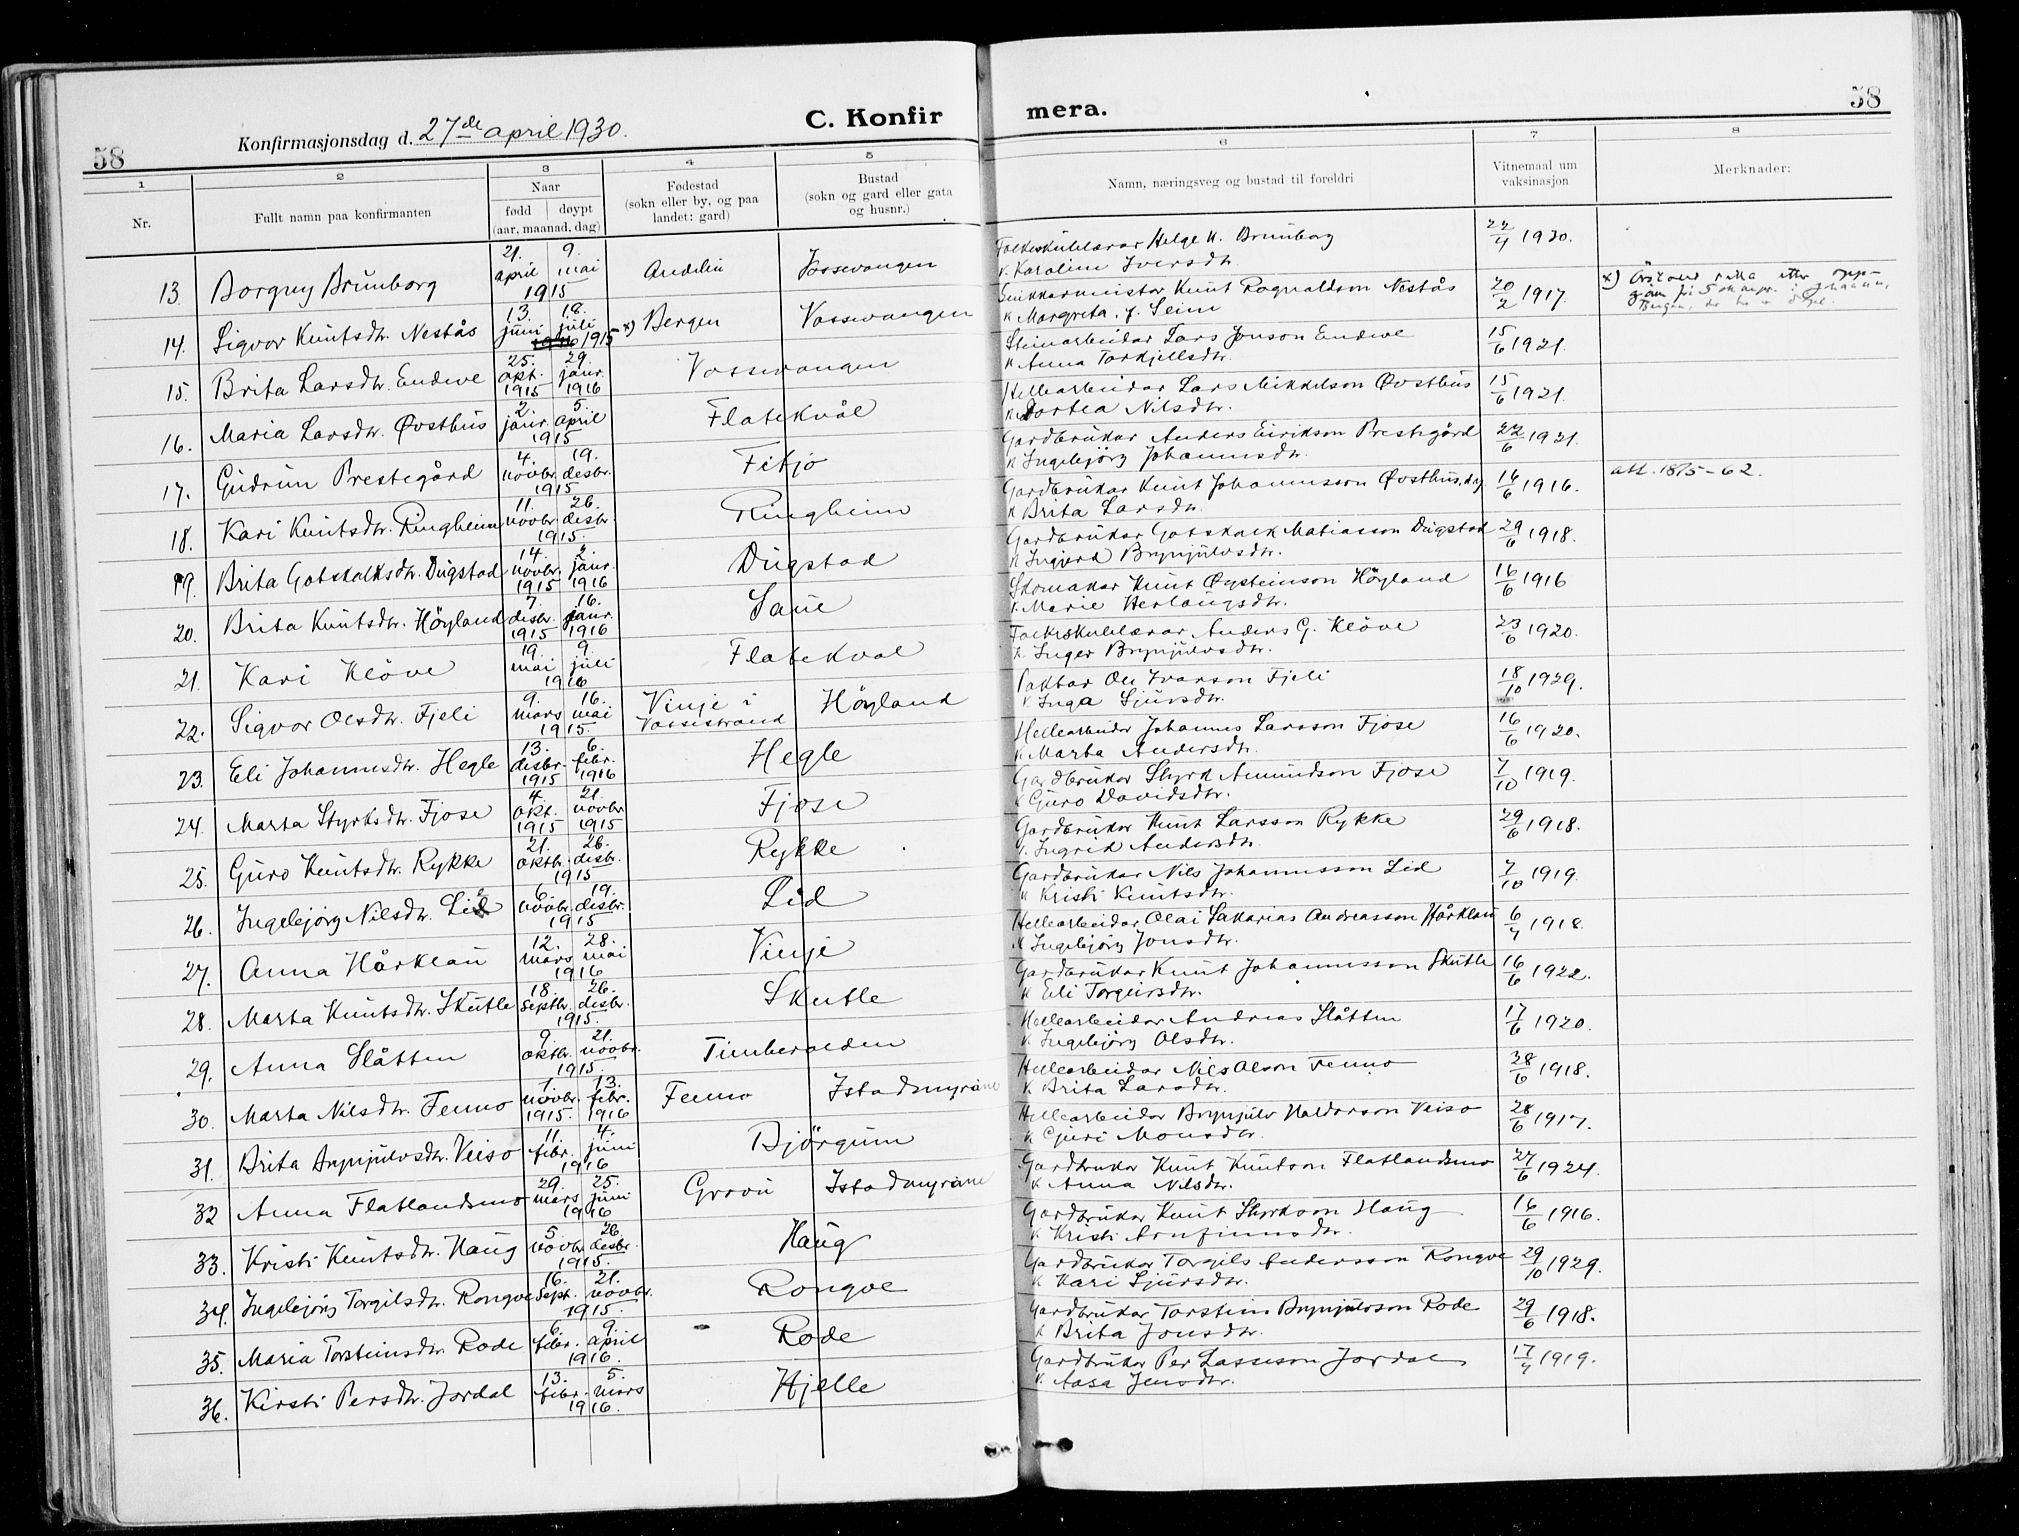 58
Konfirmasjonsdag d. 27de april 1930.
C. Konfir
mera.
58
1 2 3 4 5 6 7 8
Nr.
Fullt namn paa konfirmanten
Naar
fødd døypt
(aar, maanad, dag)
Fødestad
(sokn eller by, og paa
landet: gard)
Bustad
(sokn og gard eller gata
og husnr.)
Namn, næringsveg og bustad til foreldri
Vitnemaal um
vaksinasjon
Merknader:
13. Borgny Brunborg 21. april 9. mai 1915 Vossevangen Folkeskulelærar Helge K. Brunborg 22/4 1930.
k. Karoline Iversdtr.
14. Sigvor Knutsdtr. Nestås 13. juni 18. juli 1915 x) Bergen Vossevangen Snikkarmeister Knut Rognaldson Nestås 20/2 1917. x)
k Margreta J. Seim
15. Brita Larsdtr. Endve 25. okt. 1915 29. janr. 1916 Vossevangen Steinarbeidar Lars Jonson Endve 15/6 1921.
k Anna Torkjellsdtr.
16. Maria Larsdtr. Øvsthus 2. janr. 5 april 1915 Flatekvål Hellearbeidar Lars Mikkelson Øvsthus 15/6 1921.
k Dortea Nilsdtr.
17. Gudrun Prestegård 4. novbr. 19. desbr. 1915 Fitjo Gardbrukar Anders Eirikson Prestegård 22/6 1921.
k Ingebjörg Johannesdtr.
18. Kari Knutsdtr. Ringheim 11. novbr. 26. desbr. 1915. Ringheim Gardbrukar Knut Johannesson Øvsthus 16/6 1916. att. 18/5-62.
k Brita Larsdtr.
19. Brita Gotskalksdtr. Dugstad 14. novbr. 1915 2. janr. 1916 Dugstad Gardbrukar Gotskalk Matiasson Dugstad 29/6 1918.
k Ingjerd Brynjulvsdtr.
20. Brita Knutsdtr. Höyland 7. desbr. 1915 16. janr. 1916 Saue Skomakar Knut Øysteinson Höyland 16/6 1916
k. Marie Herlaugsdtr.
21. Kari Klöve 19. mai 9. juli 1916 Flatekval Folkeskulelærar Anders G. Klöve 23/6 1920.
k. Inger Brynjulvsdtr.
22. Sigvor Olsdtr. Fjeli 9. mars 16. mai 1915. Vinje i Vossestrand Höyland Paktar Ole Ivarson Fjeli 18/10 1929.
k Inga Sjursdtr.
23. Eli Johannesdtr. Hegle 13. desbr. 1915 6. febr. 1916 Hegle Hellearbeidar Johannes Larsson Fjose 16/6 1920.
k Marta Andersdtr.
24. Marta Styrksdtr. Fjose 4. okt. 1915 21. novbr 1915 Fjose Gardbrukar Styrk Amundson Fjose 7/10 1919.
k Guro Davidsdtr.
25. Guro Knutsdtr. Rykke 21. oktbr. 26. desbr. 1915 Rykke Gardbrukar Knut Larsson Rykke 29/6 1918.
k. Ingrid Andersdtr.
26. Ingebjörg Nilsdtr. Lid 6. novbr. 19. desbr. 1915 Lid Gardbrukar Nils Johannesson Lid 7/10 1919.
k Kristi Knutsdtr.
27. Anna Hårklau 12. mars 28. mai 1916 Vinje Hellearbeidar Olai Sakarias Andreasson Hårklau 6/7 1918.
k Ingebjörg Jonsdtr.
28. Marta Knutsdtr. Skutle 18. septbr. 26. desbr. 1915. Skutle Gardbrukar Knut Johannesson Skutle 16/6 1922.
k Eli Torgeirsdtr.
29. Anna Slåtten 9. oktbr. 21. novbr. 1915. Hellearbeidar Andreas Slåtten 17/6 1920.
k Ingebjörg Olsdtr.
30. Marta Nilsdtr. Fenno 7. novbr. 1915. 13. febr. 1916 Fenno Istadmyrane Hellearbeidar Nils Olson Fenno 28/6 1918.
k Brita Larsdtr.
31. Brita Brynjulvsdtr. Veiso 11. febr. 4. juni 1916 Björgum Hellearbeidar Brynjulv Haldorson Veiso 28/6 1917.
k Guri Monsdtr.
32 Anna Flatlandsmo 29. mars 25. juni 1916 Grovu Istadmyrane Gardbrukar Knut Knutson Flatlandsmo 27/6 1924.
k Anna Nilsdtr.
33. Kristi Knutsdtr. Haug 5. novbr. 26 desbr. 1915. Haug Gardbrukar Knut Styrkson Haug 16/6 1916.
k Kristi Arnfinnsdtr.
34. Ingebjörg Torgilsdtr. Rongve 16. Sept. 21. novbr. 1915. Rongve Gardbrukar Torgils Andersson Rongve 29/10 1929.
k Kari Sjursdtr.
35. Maria Torsteinsdtr. Rode 6. febr. 9 april 1916. Rode Gardbrukar Torstein Brynjulvson Rode 29/6 1918.
k Brita Jonsdtr.
36. Kirsti Persdtr. Jordal 13. febr. 5. mars 1916. Hjelle Gardbrukar Per Lasseson Jordal 17/7 1919.
k. Aasa Jensdtr.